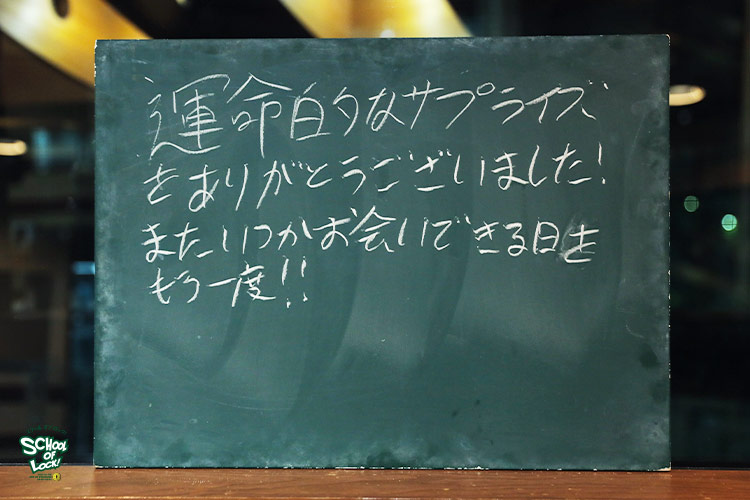 運命的なサプライズ
をありがとうございました!
またいつかお会いできる日を
もう一度!!
SCHOOL
OF
LOCK!